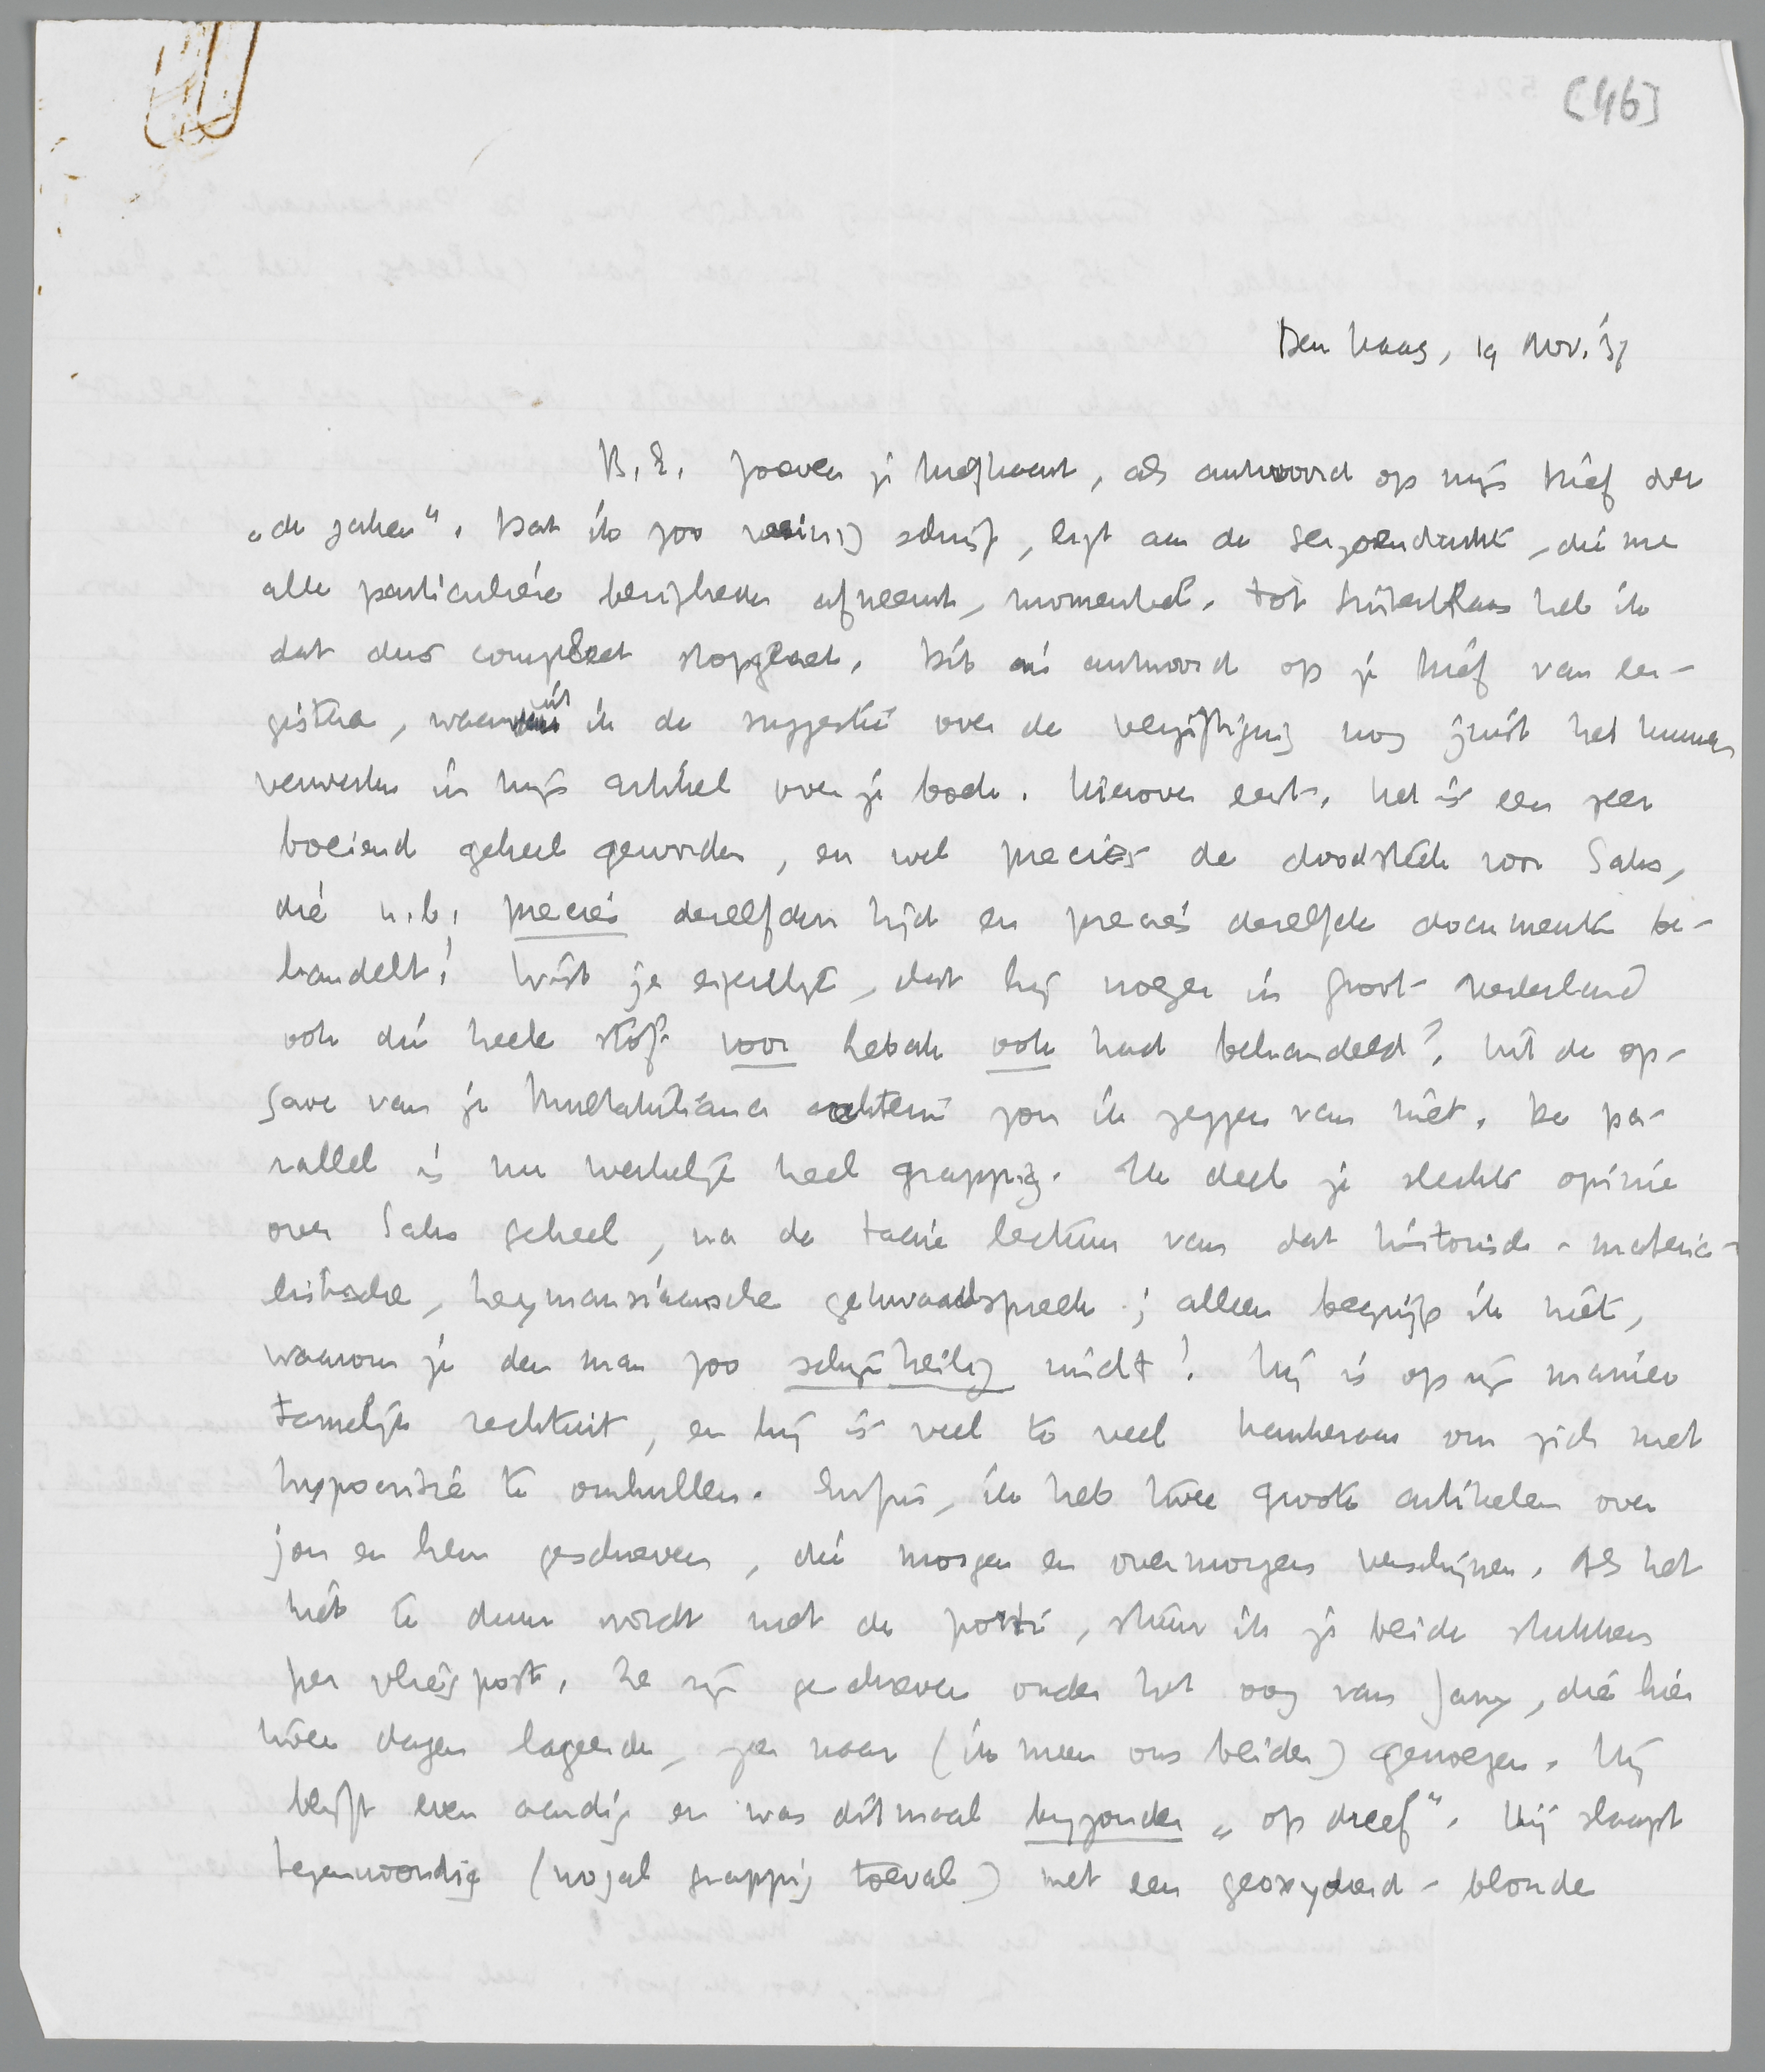 [46]
Den Haag, 19 Nov. '37
B.E. Zooeven je briefkaart, als antwoord op mijn brief over
„de zaken". Dat ik zoo weinig schrijf, ligt aan de seizoendrukte, die me
alle particuliere bezigheden afneemt, momenteel. Tot Sinterklaas heb ik
dat dus compleet stopgezet. Dit als antwoord op je brief van eer-
gisteren, waaruit ik de suggestie over de vergiftiging nog juist heb kunnen
verwerken in mijn artikel over je boek. Hierover eerst. Het is een zeer
boeiend geheel geworden, en wel precies de doodsteek voor Saks,
die n.b. precies denzelfden tijd en precies dezelfde documenten be-
handelt! Wist je eigenlijk, dat hij vroeger in Groot-Nederland
ook die heele stof voor Lebak ook had behandeld? Uit de op-
gave van je Multatuliana achterin zou ik zeggen van niet. De pa-
rallel is nu werkelijk heel grappig. Ik deel je slechte opinie
over Saks geheel, na de taaie lectuur van dat historisch-materia-
listische, heymansiaansche gekwaadspreek; alleen begrijp ik niet,
waarom je den man zoo schijnheilig vindt! Hij is op zijn manier
tamelijk rechtuit, en hij is veel te veel kankeraar om zich met
hypocrisie te omhullen. Enfin, ik heb twee groote artikelen over
jou en hem geschreven, die morgen en overmorgen verschijnen. Als het
niet te duur wordt met de porti, stuur ik je beide stukken
per vliegpost. Ze zijn geschreven onder het oog van Jany, die hier
twee dagen logeerde, zeer naar (ik meen ons beider) genoegen. Hij
blijft even aardig en was ditmaal bijzonder „op dreef". Hij slaapt
tegenwoordig (nogal grappig toeval) met een geoxydeerd-blonde